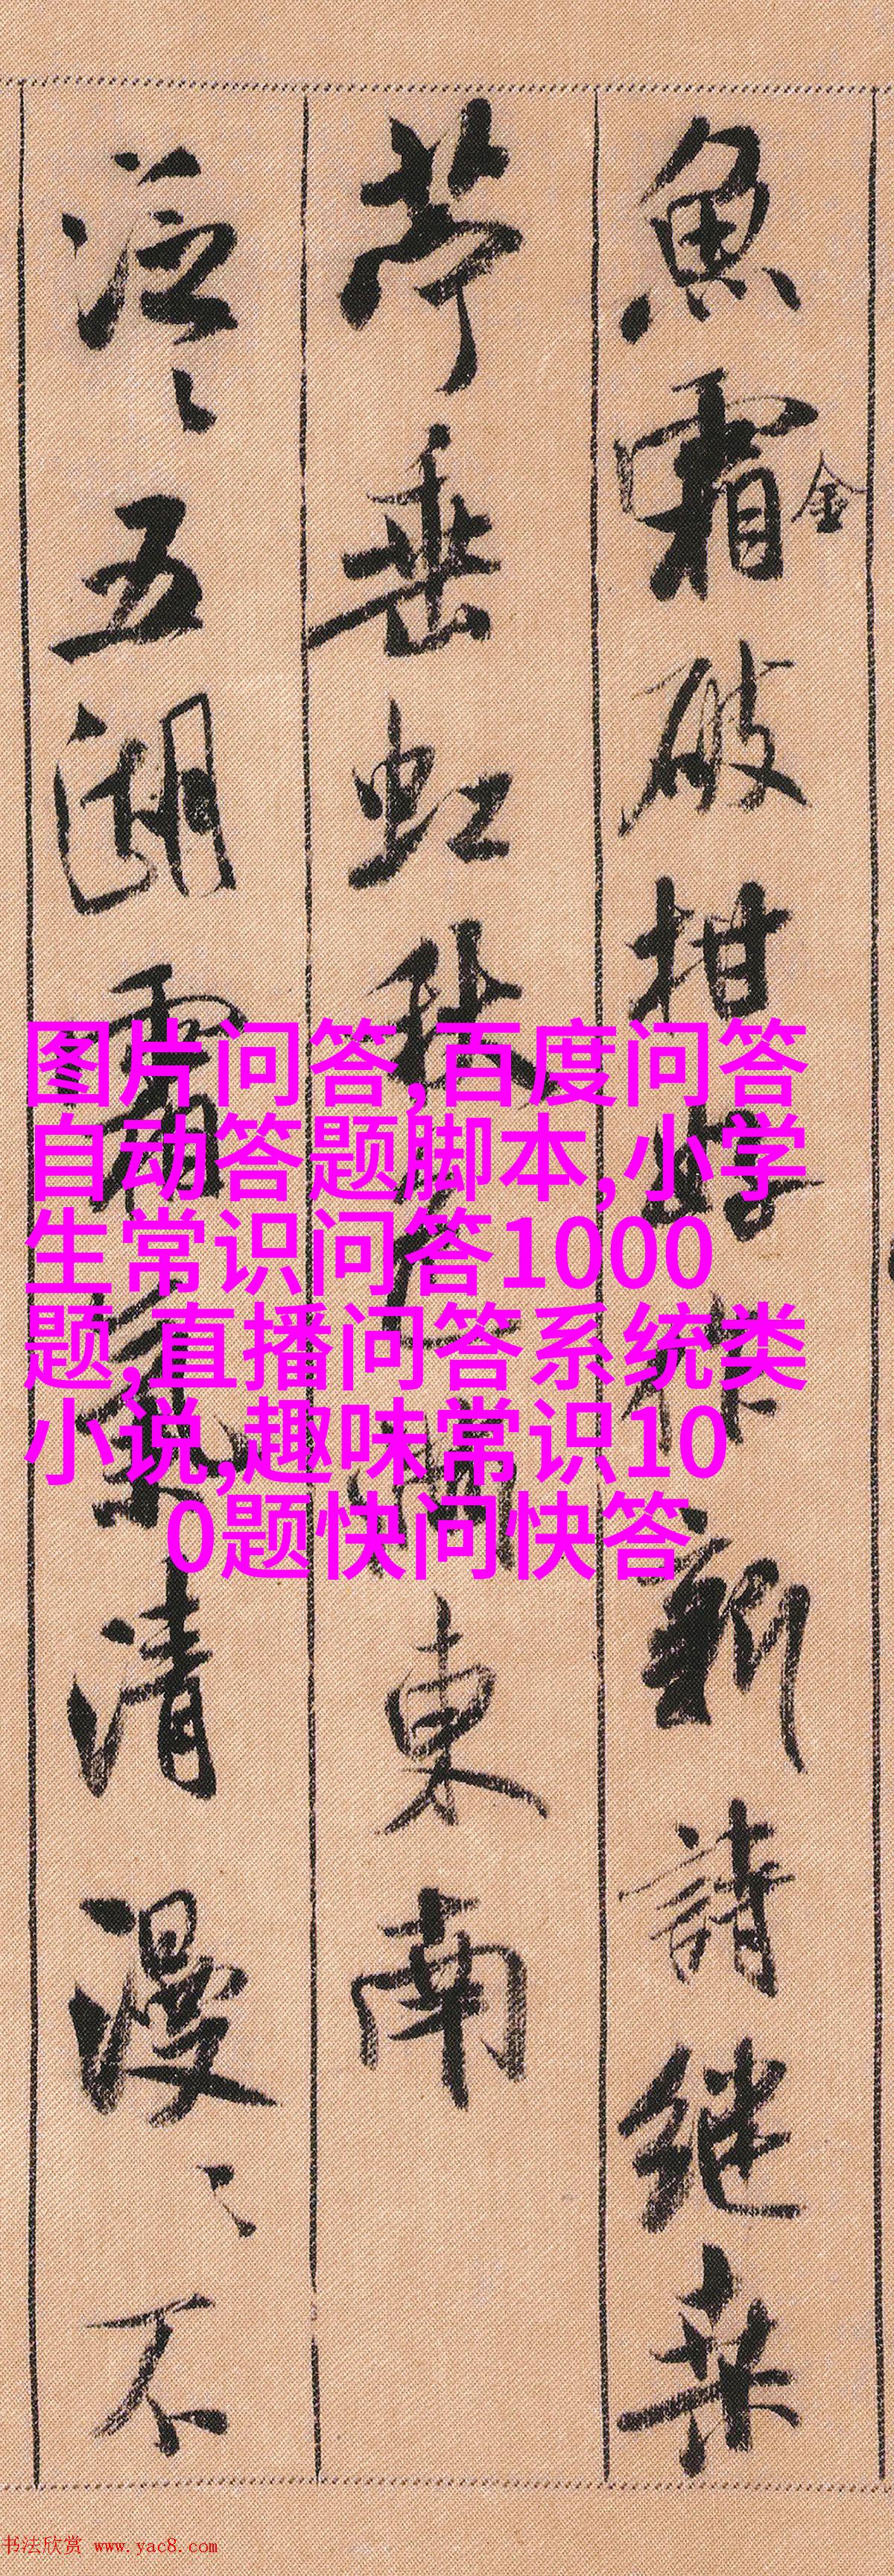 魚霜破柑好作新詩継桑
金
苧垂虹秋色滿東南
泛〻五湖霜氣清漫〻不
图片问答,百度问答
自动答题脚本,小学
生常识问答1000
题,直播问答系统类
小说,趣味常识10
0题快问快答
书法欣赏 www.yac8.com